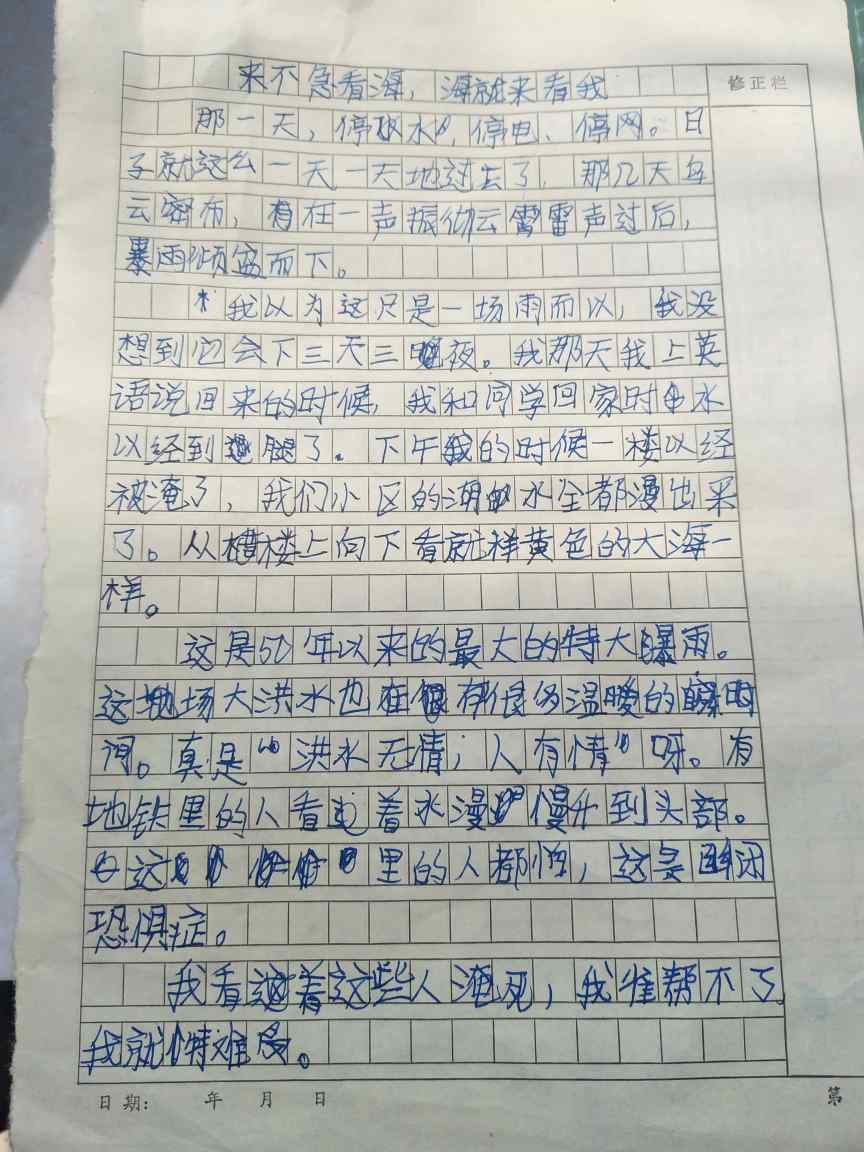 来不急看海，海就来看我
修正栏
那一天，停水，停电、停网。日
子就这么一天一天地过去了，那几天乌
云密布，有在一声振彻云霄雷声过后，
暴雨倾盆而下。
我以为这只是一场雨而以，我没
想到它会下三天三夜。我那天我上英
语说回来的时候，我和同学回家时水
以经到腿了。下午我的时候一楼以经
被淹了，我们小区的湖水全都漫出来
了。从楼上向下看就样黄色的大海一
样。
这是50年以来的最大的特大曝雨。
这场大洪水也在有很多温暧的时
间。真是“洪水无情；人有情”呀。有
地铁里的人看着水漫慢升到头部。
这里的人都怕，这是幽闭
恐惧症。
我看着这些人淹死，我帮不了
我就特难受。
日期： 年 月 日
第